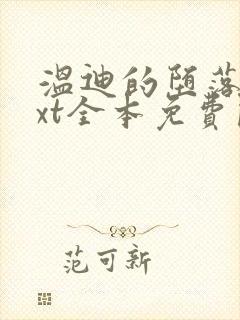 温迪的堕落
xt全本免費
范可新